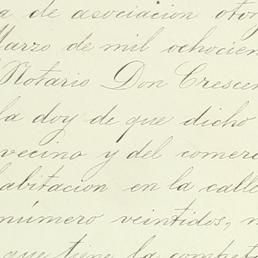 a de asociacion otor
Marzo de mil ochocien
Notario Don Crescen
la doy de que dicho
vecino y del comerc
habitacion en la calle
número veintidos, n
que tiene la compete